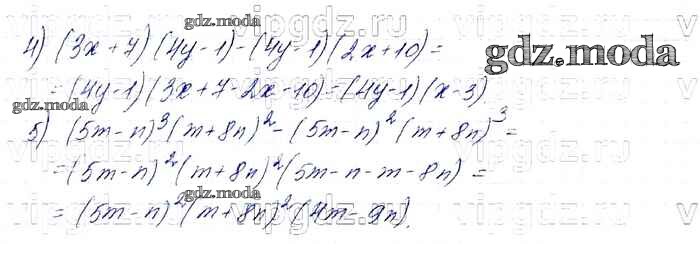 gdz.moda
4) (3x+7)(4y-1)-(4y-1)(2x+10)=
gdz.moda
=(4y-1)(3x+7-2x-10)=(4y-1)(x-3)
gdz.moda
5) (5m-n)³(m+8n)²-(5m-n)²(m+8n)³=
=(5m-n)²(m+8n)²(5m-n-m-8n)=
gdz.moda
=(5m-n)²(m+8n)²(4m-9n).